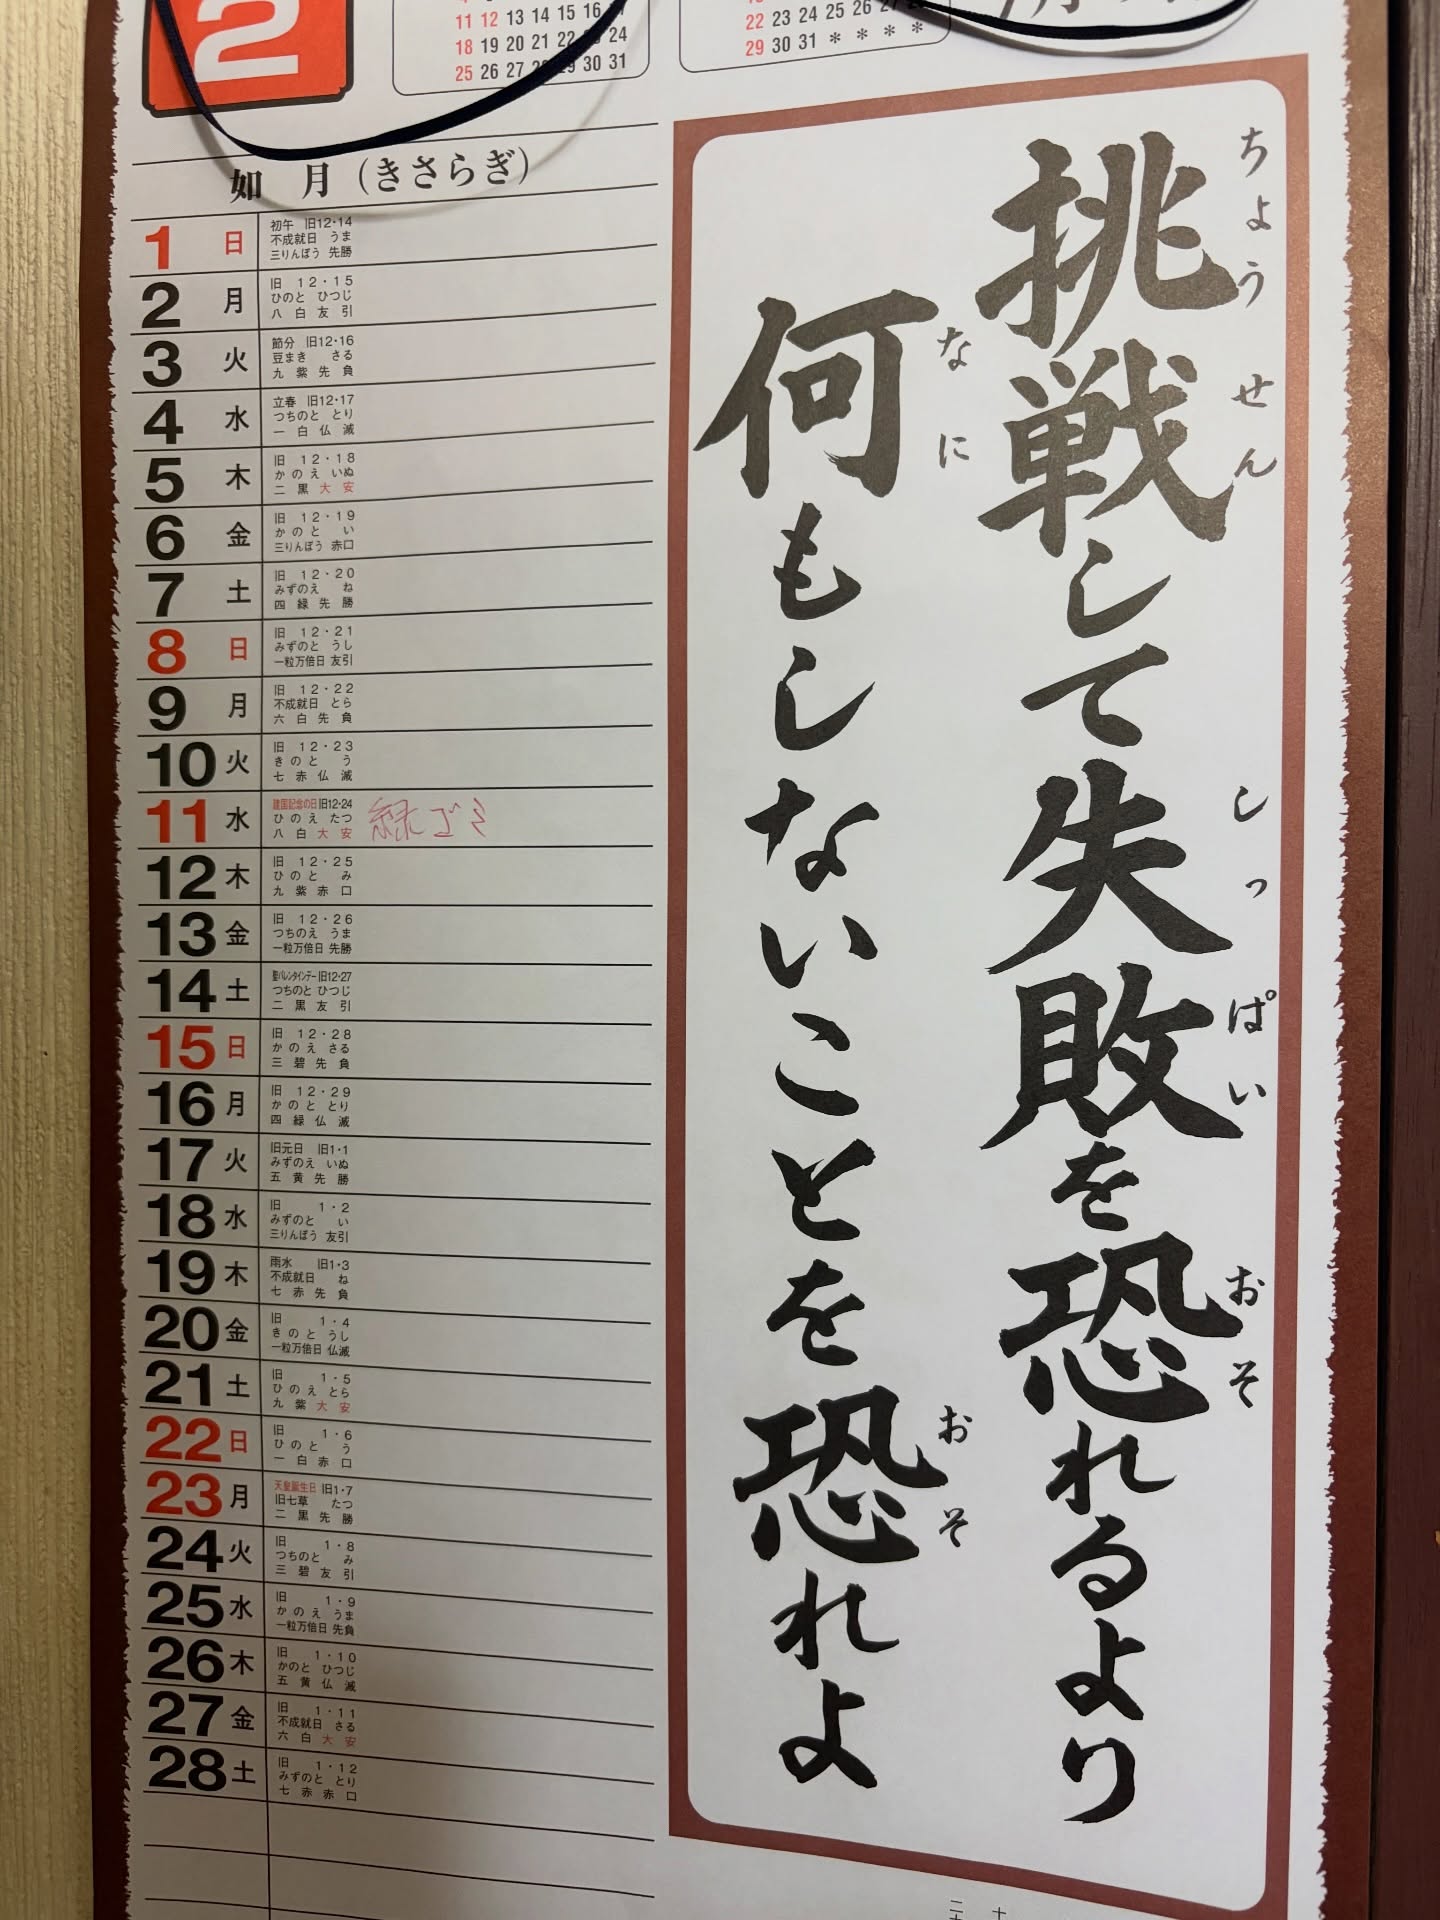 2
11 12 13 14 15 16 17
18 19 20 21 22 23 24
25 26 27 28 29 30 31
22 23 24 25 26 27 28
29 30 31 * * * *
如 月 (きさらぎ)
1 日 初午 旧12・14
不成就日 うま
三りんぼう 先勝
2 月 旧 12・15
ひのと ひつじ
八白友引
3 火 節分 旧12・16
豆まき さる
九紫先負
4 水 立春 旧12・17
つちのと とり
一白仏滅
5 木 旧 12・18
かのえ いぬ
二黒大安
6 金 旧 12・19
かのと い
三りんぼう 赤口
7 土 旧 12・20
みずのえ ね
四緑先勝
8 日 旧 12・21
みずのと うし
一粒万倍日 友引
9 月 旧 12・22
不成就日 とら
六白先負
10 火 旧 12・23
きのと う
七赤仏滅
11 水 建国記念の日 旧12・24
ひのえ たつ
八白大安
緑ゴミ
12 木 旧 12・25
ひのと み
九紫赤口
13 金 旧 12・26
つちのえ うま
一粒万倍日 先勝
14 土 聖バレンタインデー 旧12・27
つちのと ひつじ
二黒友引
15 日 旧 12・28
かのえ さる
三碧先負
16 月 旧 12・29
かのと とり
四緑仏滅
17 火 旧元日 旧1・1
みずのえ いぬ
五黄先勝
18 水 旧 1・2
みずのと い
三りんぼう 友引
19 木 雨水 旧1・3
不成就日 ね
七赤先負
20 金 旧 1・4
きのと うし
一粒万倍日 仏滅
21 土 旧 1・5
ひのえ とら
九紫大安
22 日 旧 1・6
ひのと う
一白赤口
23 月 天皇誕生日 旧1・7
旧七草 たつ
二黒先勝
24 火 旧 1・8
つちのと み
三碧友引
25 水 旧 1・9
かのえ うま
一粒万倍日 先負
26 木 旧 1・10
かのと ひつじ
五黄仏滅
27 金 旧 1・11
不成就日 さる
六白大安
28 土 旧 1・12
みずのと とり
七赤赤口
挑戦して失敗を恐れるより
ちょう せん しっ ぱい おそ
何もしないことを恐れよ
なに おそ